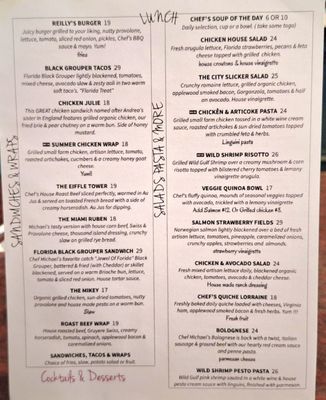 LUNCH
SANDWICHES & WRAPS
REILLY'S BURGER 19
Juicy burger grilled to your liking, nutty provolone,
lettuce, tomato, sliced red onion, pickles, Chef's BBQ
sauce & mayo. Yum!
fries
BLACK GROUPER TACOS 29
Florida Black Grouper lightly blackened, tomatoes,
mixed cheese, avocado slaw & zesty aioli in two warm
soft taco's. "Florida Treat"
CHICKEN JULIE 18
This GREAT chicken sandwich named after Andrea's
sister in England features grilled organic chicken, our
fried brie & pear chutney on a warm bun. Side of honey
mustard.
SUMMER CHICKEN WRAP 18
Grilled small farm chicken, artisan lettuce, tomato,
roasted artichokes, cucumbers & a creamy honey goat
cheese.
Yum!!
THE EIFFLE TOWER 19
Chef's House Roast Beef sliced perfectly, warmed in Au
Jus & served on toasted French bread with a side of
creamy horseradish. Au Jus for dipping.
THE MIAMI RUBEN 18
Michael's tasty version with house corn beef, Swiss &
Provolone cheese, thousand island dressing, crunchy
slaw on grilled rye bread.
FLORIDA BLACK GROUPER SANDWICH 29
Chef Michael's favorite catch "Jewel Of Florida" Black
Grouper, battered & fried (with Cheddar) or skillet
blackened, served on a warm Brioche bun, lettuce,
tomato & sliced red onion. House tartar sauce.
THE MIKEY 17
Organic grilled chicken, sun dried tomatoes, nutty
provolone and house made pesto on a warm bun.
Slaw
ROAST BEEF WRAP 19
House roasted beef, Gruyere Swiss, creamy
horseradish, tomato, spinach, applewood bacon &
caramelized onions.
SANDWICHES, TACOS & WRAPS
Choice of fries, slaw, potato salad or fruit.
Cocktails & Desserts
SALADS, PASTA & MORE
CHEF'S SOUP OF THE DAY 6 OR 10
Daily selection, cup or a bowl. ( take some togo)
CHICKEN HOUSE SALAD 24
Fresh arugula lettuce, Florida strawberries, pecans & feta
cheese topped with grilled chicken.
house croutons & house vinaigrette
THE CITY SLICKER SALAD 25
Crunchy romaine lettuce, grilled organic chicken,
applewood smoked bacon, Gorgonzola, tomatoes & half
an avocado. House vinaigrette.
CHICKEN & ARTICOKE PASTA 24
Grilled small farm chicken tossed in a white wine cream
sauce, roasted artichokes & sun dried tomatoes topped
with crumbled feta & herbs.
Linguini pasta
WILD SHRIMP RISOTTO 26
Grilled Wild Gulf Shrimp over a creamy mushroom & corn
risotto topped with blistered cherry tomatoes & lemony
vinaigrette arugula.
VEGGIE QUINOA BOWL 17
Chef's fluffy quinoa, mounds of seasonal veggies topped
with avocado, trickled with a lemony vinaigrette
Add Salmon $12, Or Grilled chicken $8.
SALMON STRAWBERRY FIELDS 29
Norwegian salmon lightly blackened over a bed of fresh
artisan lettuce, tomatoes, pineapple, caramelized onions,
crunchy apples, strawberries and almonds.
strawberry vinaigrette
CHICKEN & AVOCADO SALAD 24
Fresh mixed artisan lettuce daily, blackened organic
chicken, tomatoes, avocado & cheddar cheese.
House made ranch dressing
CHEF'S QUICHE LORRAINE 18
Freshly baked daily quiche loaded with cheeses, Virginia
ham, applewood smoked bacon & fresh herbs. Yum !!!
Fresh fruit
BOLOGNESE 24
Chef Michael's Bolognese is back with a twist, Italian
sausage & ground beef with our hearty red cream sauce
and penne pasta
parmesan cheese
WILD SHRIMP PESTO PASTA 26
Wild Gulf pink shrimp sautéd in a white wine & house
pesto cream sauce with linguine, finished with parmesan.